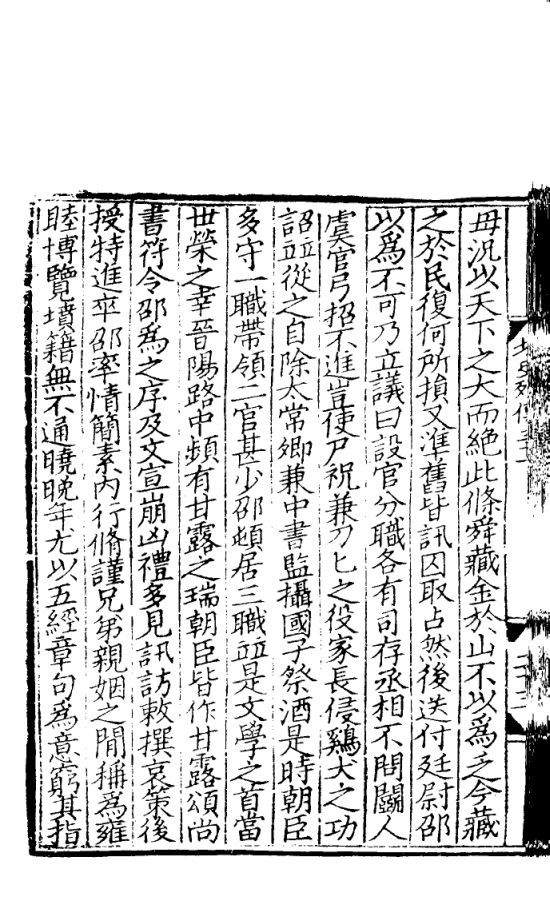 毋況以天下之大而絶此條舜藏金於山不以爲乏今藏
之於民復何所損又準舊皆訊囚取占然後送付廷尉邵
以爲不可乃立議曰設官分職各有司存丞相不問鬭人
虞官弓招不進豈使尸祝兼刀匕之役家長侵鷄犬之功
詔並從之自除太常卿兼中書監攝國子祭酒是時朝臣
多守一職帶領二官甚少邵頻居三職並是文學之首當
世榮之幸晉陽路中頻有甘露之瑞朝臣皆作甘露頌尚
書符令邵爲之序及文宣崩凶禮多見訊訪敕撰哀策後
授特進卒邵率情簡素内行脩謹兄弟親姻之閒稱爲雍
睦博覽墳籍無不通曉晚年尤以五經章句爲意窮其指